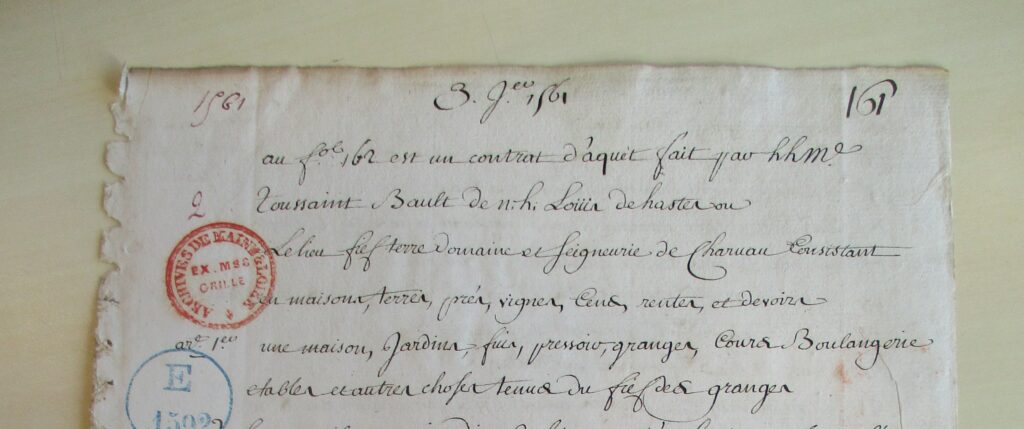 1561
3. J.er 1561
161
au fol 162 est un contrat d'aquet fait par hhMe
2
Toussaint Bault de n.h. Louis de hastes ou
Le lieu fief terre domaine et seigneurie de Charuau Consistant
ARCHIVES DE MAINE & LOIRE
EX. MSS
GRILLE
en maisons, terres, prés, vignes, Cens, rentes, et devoirs
are 1er une maison, Jardins, fuie, pressoir, granges, Cours Boulangerie
E
1592
etables et autres choses tenus du fief des granges